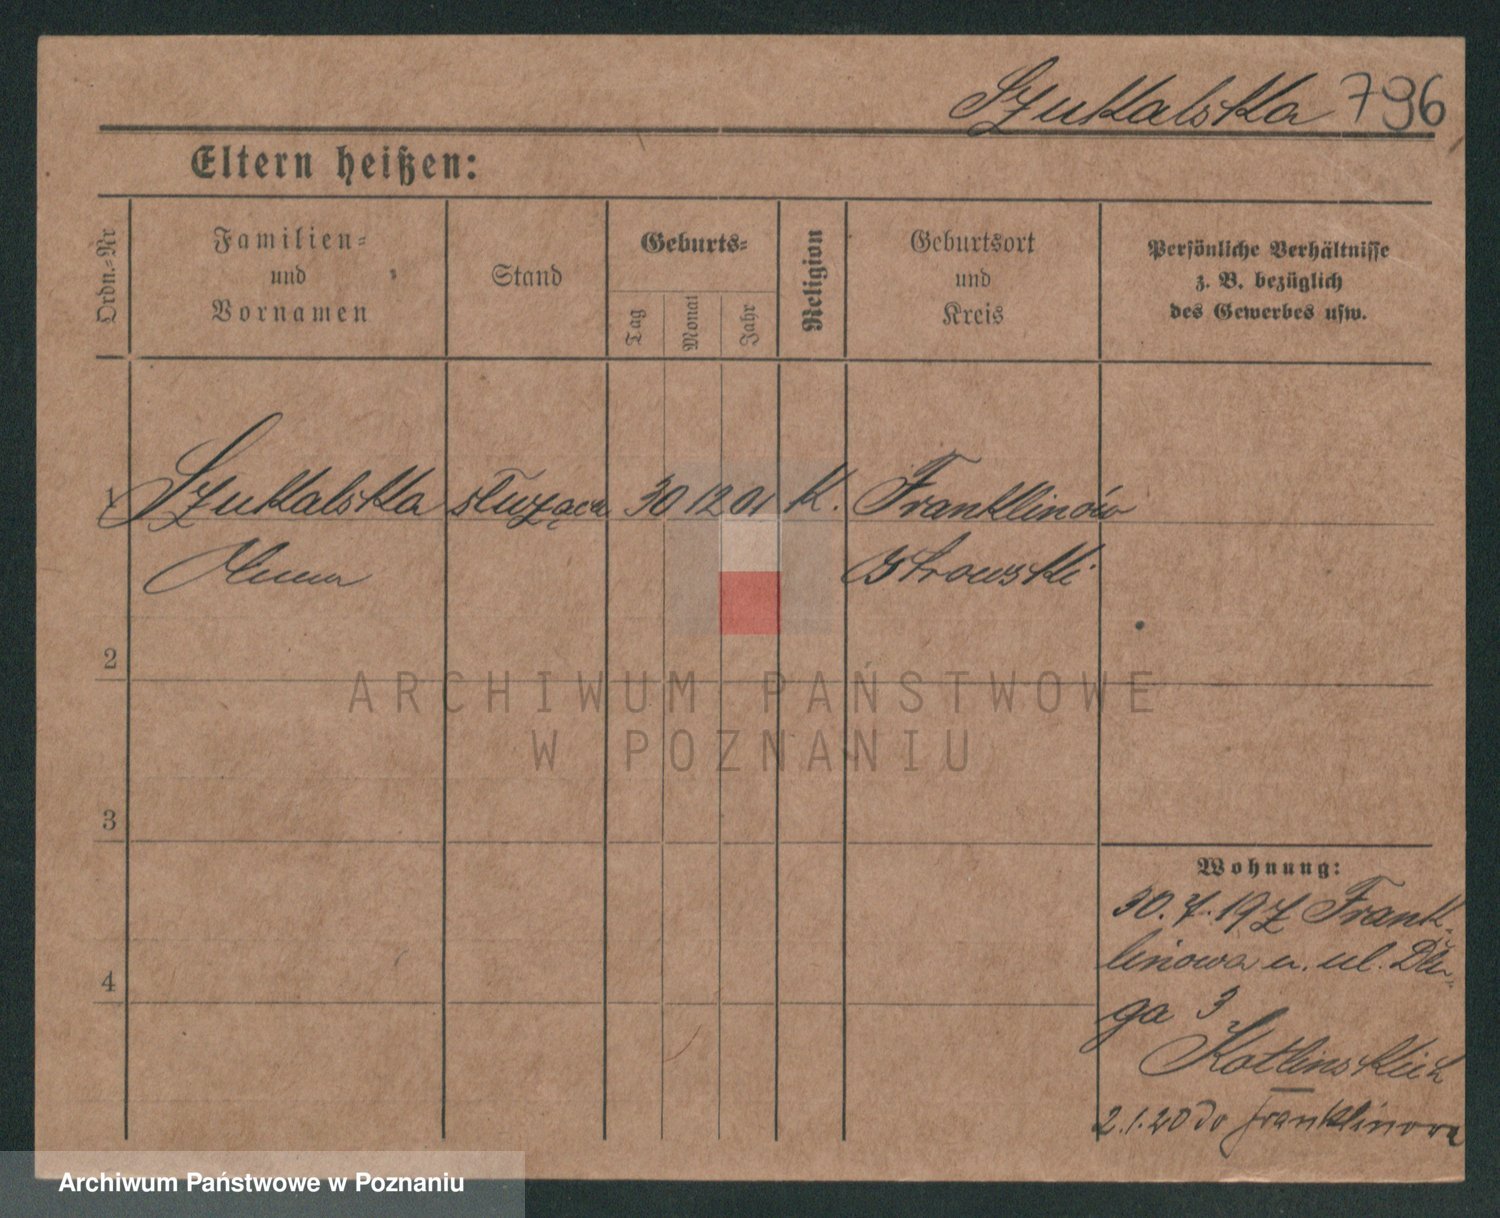 Szukalska 796
Eltern heißen:
Ordn.-Nr
Familien-
und
Vornamen
Stand
Geburts-
Tag
Monat
Jahr
Religion
Geburtsort
und
Kreis
Persönliche Verhältnisse
z. B. bezüglich
des Gewerbes usw.
1 Szukalska służąca 30 12 01 K. Franklinów
Ostrowski
2
3
4
Wohnung:
30.7.19 z Frank-
linowa n. ul. Dłu-
ga 3
Kotlinskich
2.1.20 do Franklinowa
ARCHIWUM PAŃSTWOWE
W POZNANIU
Archiwum Państwowe w Poznaniu